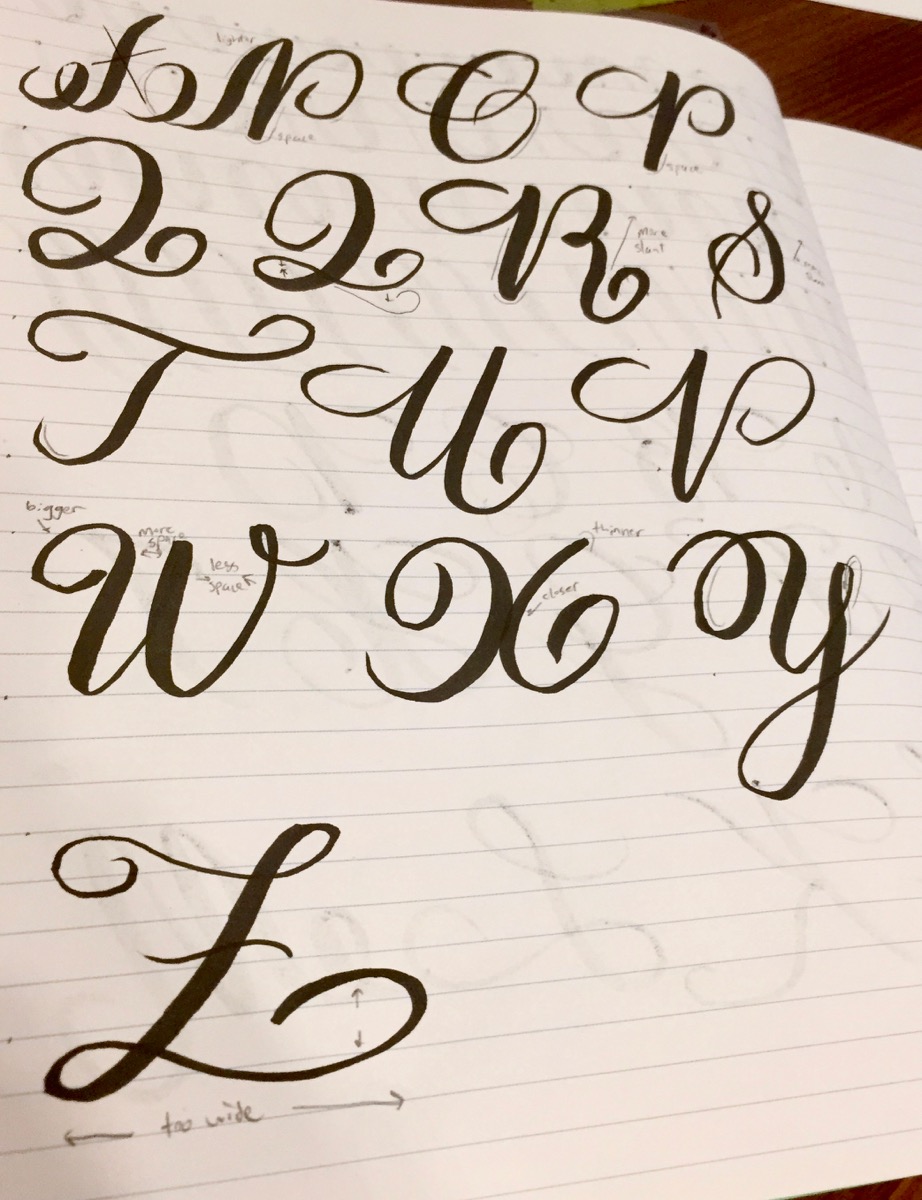 lighter
N O P
space space
Q Q R S
more
slant
T U V
bigger
more
space
less
space
thinner
closer
W X Y
Z
too wide